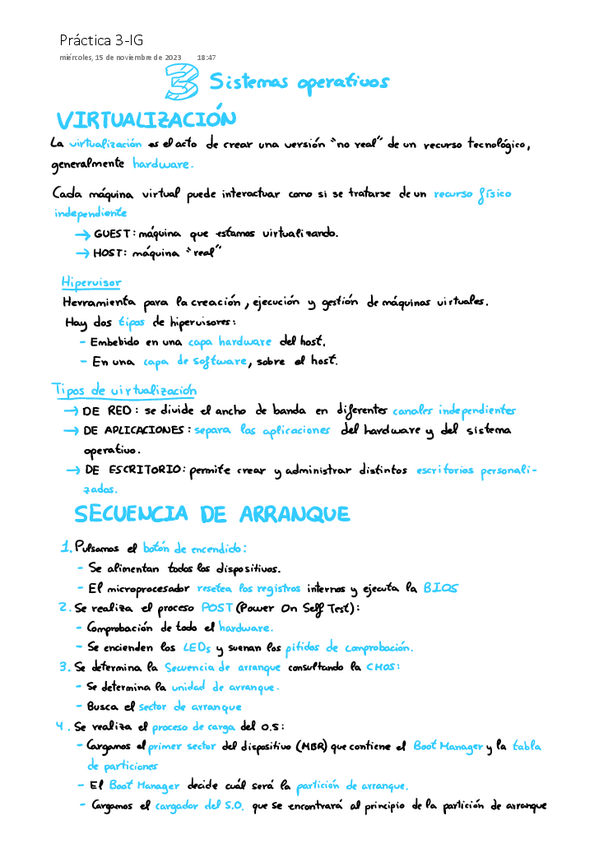 Práctica 3-IG
miércoles, 15 de noviembre de 2023 18:47
3 Sistemas operativos
VIRTUALIZACIÓN
La virtualización es el acto de crear una versión "no real" de un recurso tecnológico,
generalmente hardware.
Cada máquina virtual puede interactuar como si se tratarse de un recurso físico
independiente
→ GUEST: máquina que estamos virtualizando.
→ HOST: máquina "real"
Hipervisor
Herramienta para la creación, ejecución y gestión de máquinas virtuales.
Hay dos tipos de hipervisores:
- Embebido en una capa hardware del host.
- En una capa de software, sobre el host.
Tipos de virtualización
→ DE RED: se divide el ancho de banda en diferentes canales independientes
→ DE APLICACIONES: separa las aplicaciones del hardware y del sistema
operativo.
→ DE ESCRITORIO: permite crear y administrar distintos escritorios personali-
zados.
SECUENCIA DE ARRANQUE
1. Pulsamos el botón de encendido:
- Se alimentan todos los dispositivos.
- El microprocesador resetea los registros internos y ejecuta la BIOS
2. Se realiza el proceso POST (Power On Self Test):
- Comprobación de todo el hardware.
- Se encienden los LEDs y suenan los pitidos de comprobación.
3. Se determina la Secuencia de arranque consultando la CMOS:
- Se determina la unidad de arranque.
- Busca el sector de arranque
4. Se realiza el proceso de carga del O.S:
- Cargamos el primer sector del dispositivo (MBR) que contiene el Boot Manager y la tabla
de particiones
- El Boot Manager decide cuál será la partición de arranque.
- Cargamos el cargador del S.O. que se encontrará al principio de la partición de arranque